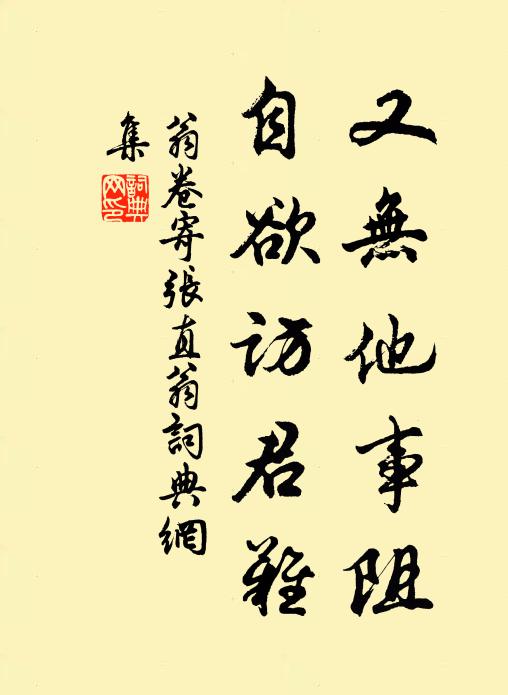 又無他事阻
自欲訪君難
翁卷寄張直翁詞典網
集
詞典
网印